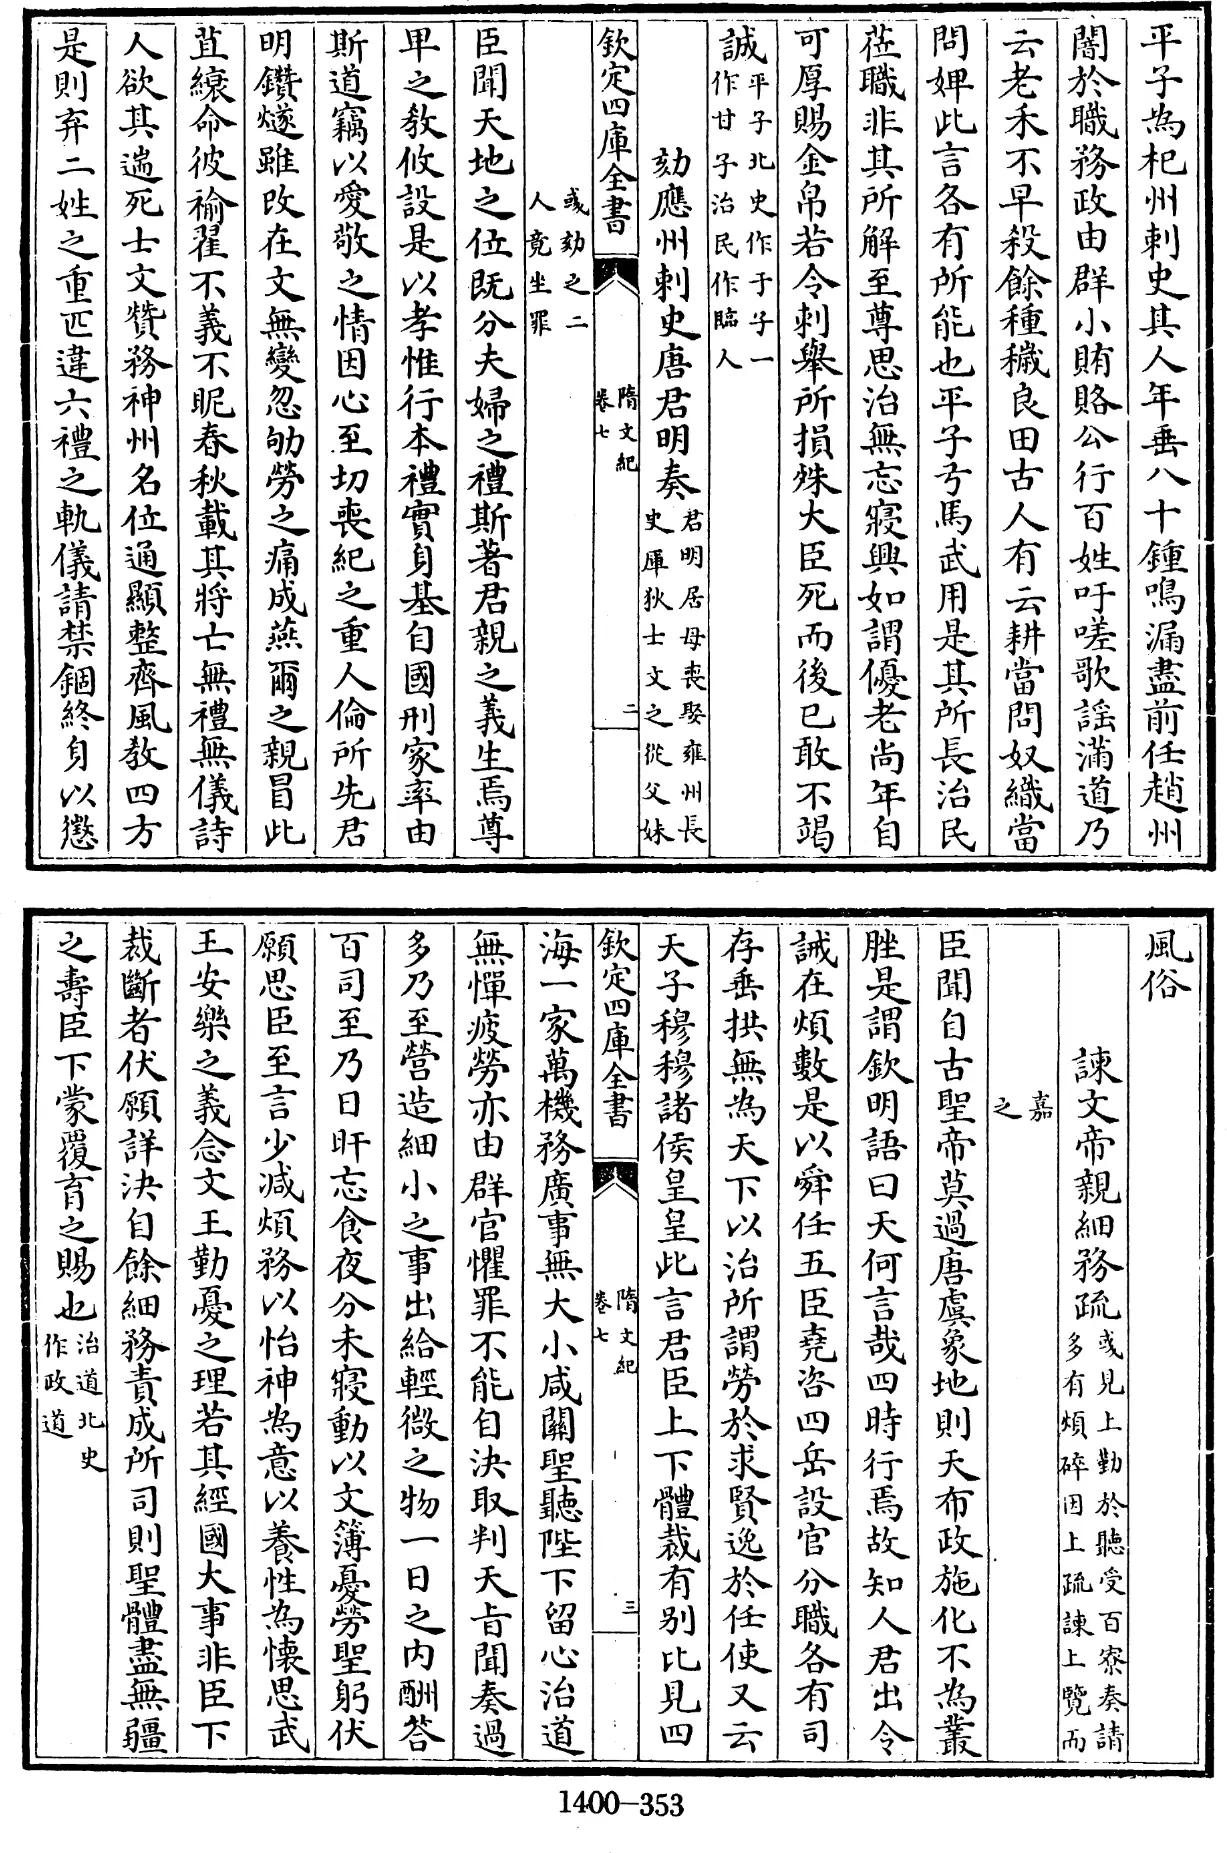 平子為杞州刺史其人年垂八十鍾鳴漏盡前任趙州
闇於職務政由群小賄賂公行百姓吁嗟歌謡滿道乃
云老禾不早殺餘種穢良田古人有云耕當問奴織當
問婢此言各有所能也平子弓馬武用是其所長治民
蒞職非其所解至尊思治無忘寢興如謂優老尚年自
可厚賜金帛若令刺舉所損殊大臣死而後已敢不竭
誠平子北史作于子一
作甘子治民作臨人
劾應州刺史唐君明奏君明居母喪娶雍州長
史庫狄士文之從父妹
欽定四庫全書
隋文紀
卷七
二
彧劾之二
人竟坐罪
臣聞天地之位既分夫婦之禮斯著君親之義生焉尊
卑之教攸設是以孝惟行本禮實身基自國刑家率由
斯道竊以愛敬之情因心至切喪紀之重人倫所先君
明鑽燧雖改在文無變忽劬勞之痛成燕爾之親冒此
苴縗命彼褕翟不義不昵春秋載其將亡無禮無儀詩
人欲其遄死士文贊務神州名位通顯整齊風教四方
是則弃二姓之重匹違六禮之軌儀請禁錮終身以懲
風俗
諫文帝親細務疏彧見上勤於聽受百寮奏請
多有煩碎因上疏諫上覽而
嘉
之
臣聞自古聖帝莫過唐虞象地則天布政施化不為叢
脞是謂欽明語曰天何言哉四時行焉故知人君出令
誡在煩數是以舜任五臣堯咨四岳設官分職各有司
存垂拱無為天下以治所謂勞於求賢逸於任使又云
天子穆穆諸侯皇皇此言君臣上下體裁有别比見四
欽定四庫全書
隋文紀
卷七
三
海一家萬機務廣事無大小咸關聖聽陛下留心治道
無憚疲勞亦由群官懼罪不能自決取判天旨聞奏過
多乃至營造細小之事出給輕微之物一日之内酬答
百司至乃日旰忘食夜分未寢動以文簿憂勞聖躬伏
願思臣至言少減煩務以怡神為意以養性為懷思武
王安樂之義念文王勤憂之理若其經國大事非臣下
裁斷者伏願詳決自餘細務責成所司則聖體盡無疆
之壽臣下蒙覆育之賜也治道北史
作政道
1400-353